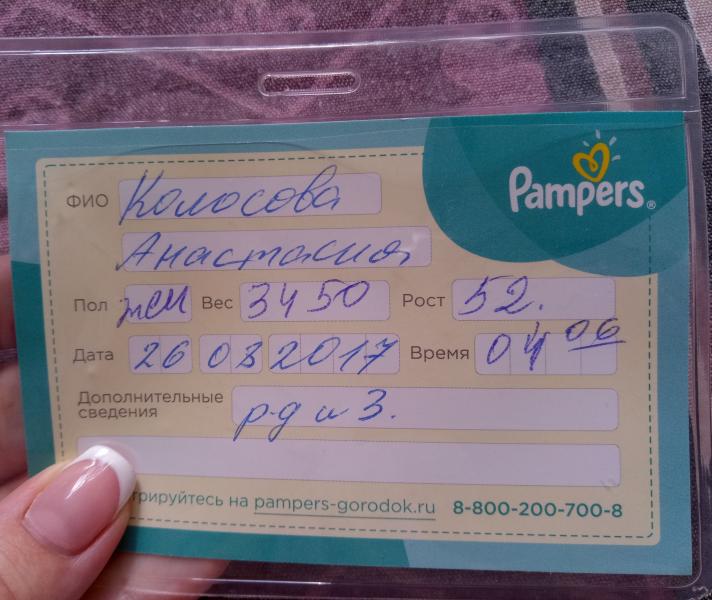 Pampers®
ФИО Колосова
Анастасия
Пол жен Вес 3450 Рост 52.
Дата 26 08 2017 Время 04 06
Дополнительные
сведения р-д и 3.
трируйтесь на pampers-gorodok.ru 8-800-200-700-8